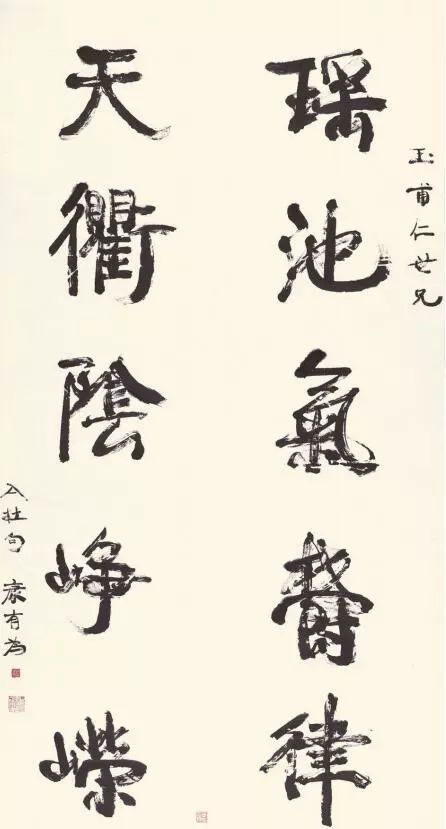 玉甫仁世兄
瑤池氣鬱律
天衢陰崢嶸
入杜句 康有為